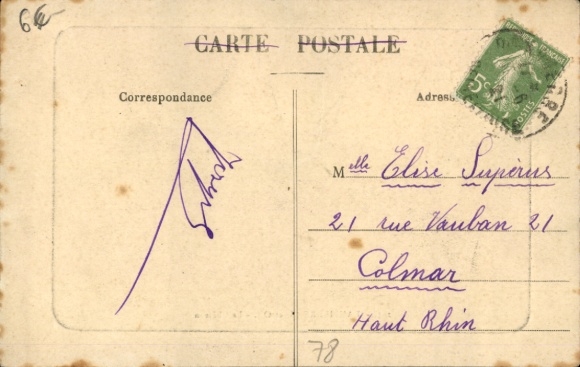 6€
CARTE POSTALE
Correspondance
Adress
5c
POSTES
Mlle Elise Supérus
21 rue Vauban 21
Colmar
Haut Rhin
78